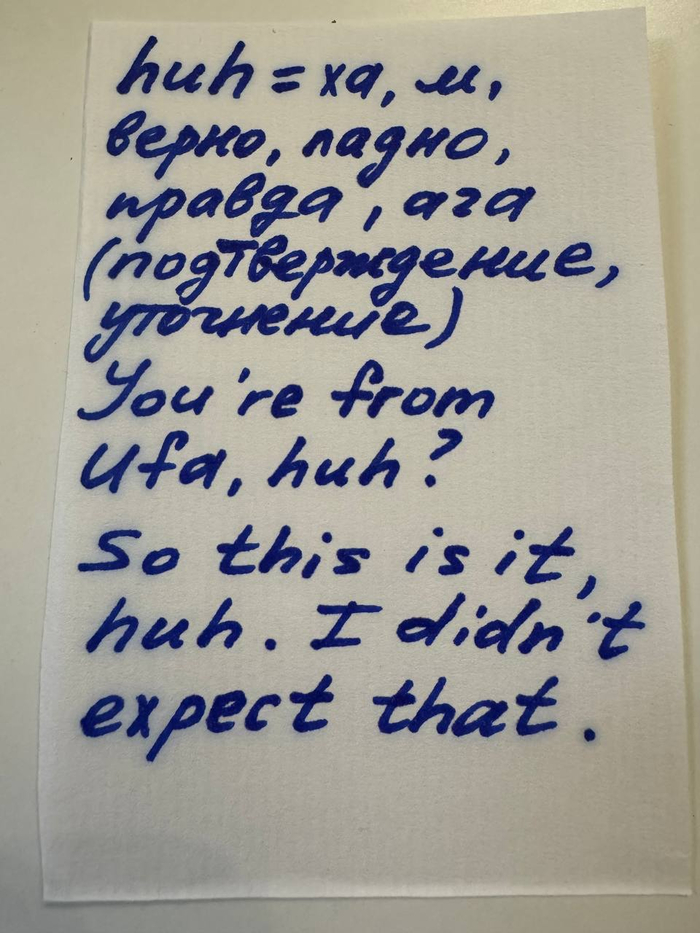 huh = ха, м,
верно, ладно,
правда, ага
(подтверждение,
уточнение)
You're from
Ufa, huh?
So this is it,
huh. I didn't
expect that.